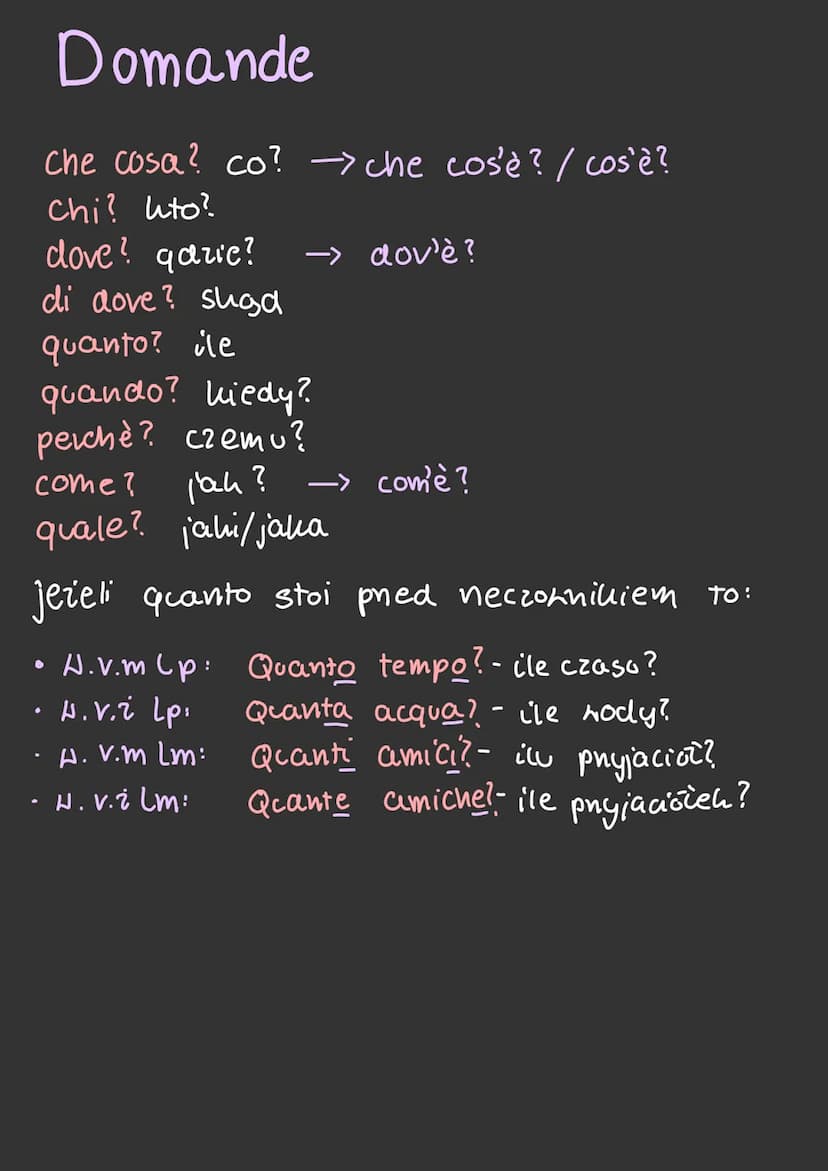 Domande
che cosa? co? → che cos'è? / cos'è?
chi? kto?
dove? gdzie? → dov'è?
di dove? skąd
quanto? ile
quando? kiedy?
perchè? czemu?
come? jak? → com'è?
quale? jaki/jaka
jeżeli quanto stoi przed rzeczownikiem to:
• r.m lp: Quanto tempo? - ile czasu?
• r.ż lp: Quanta acqua? - ile wody?
• r.m lm: Quanti amici? - ilu przyjaciół?
• r.ż lm: Quante amiche? - ile przyjaciółek?